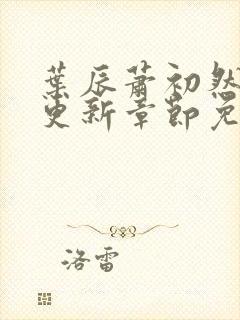 葉辰蕭初然
更新章節免
洛雷